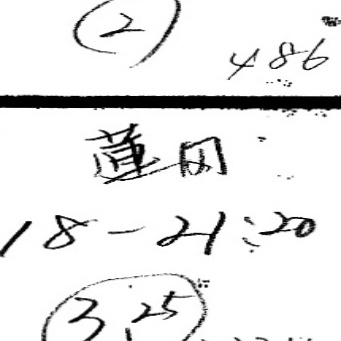 ②
486
蓮田
18-21:20
3.25